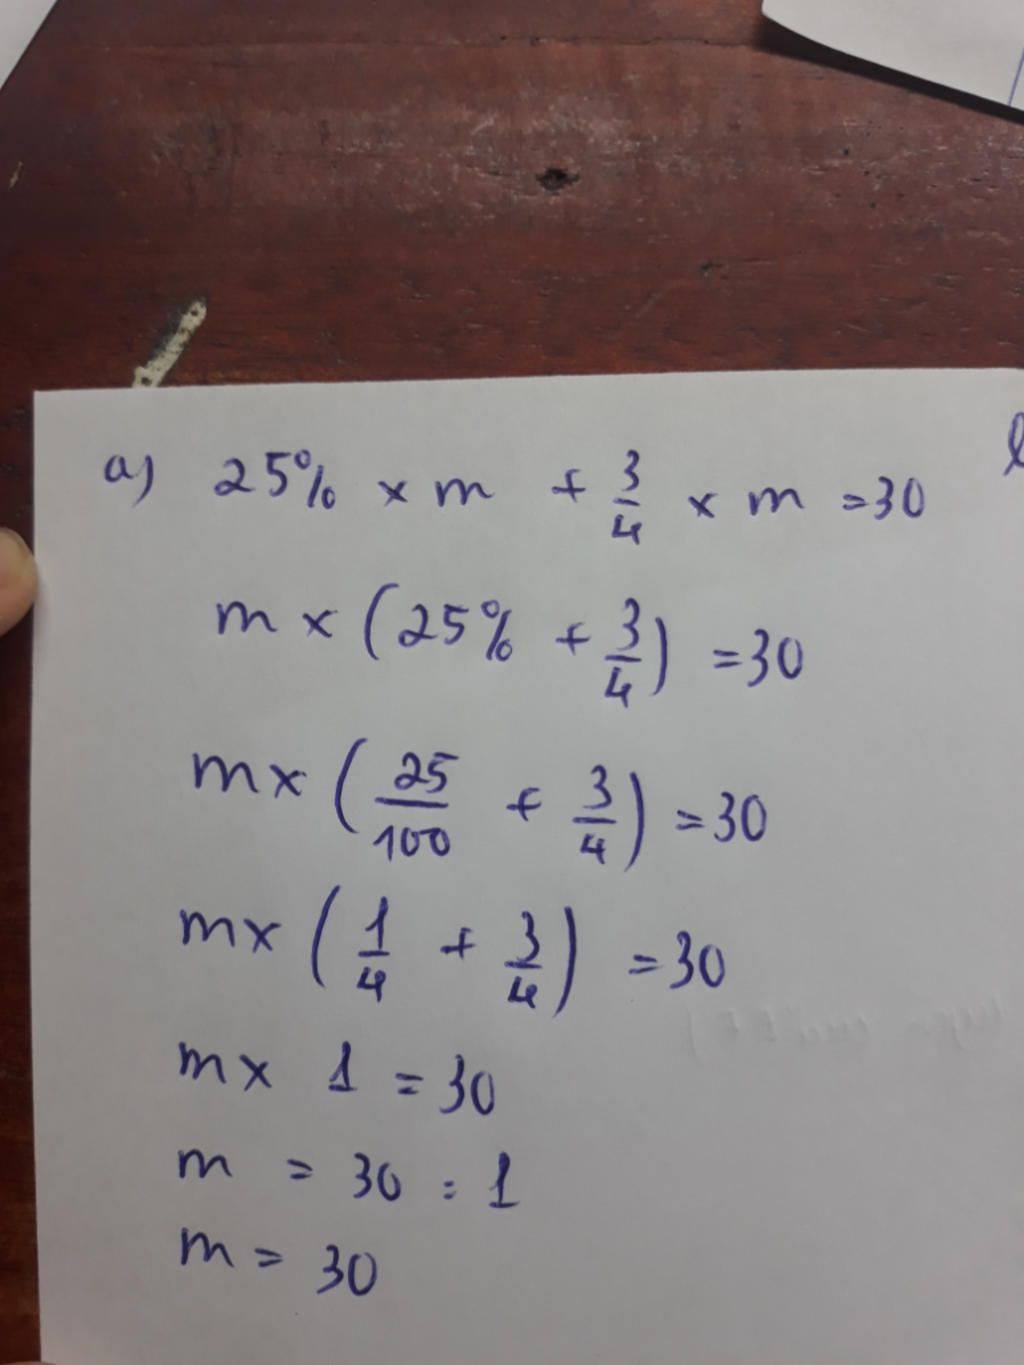 a) 25% × m + 3/4 × m = 30
m × (25% + 3/4) = 30
m × (25/100 + 3/4) = 30
m × (1/4 + 3/4) = 30
m × 1 = 30
m = 30 : 1
m = 30